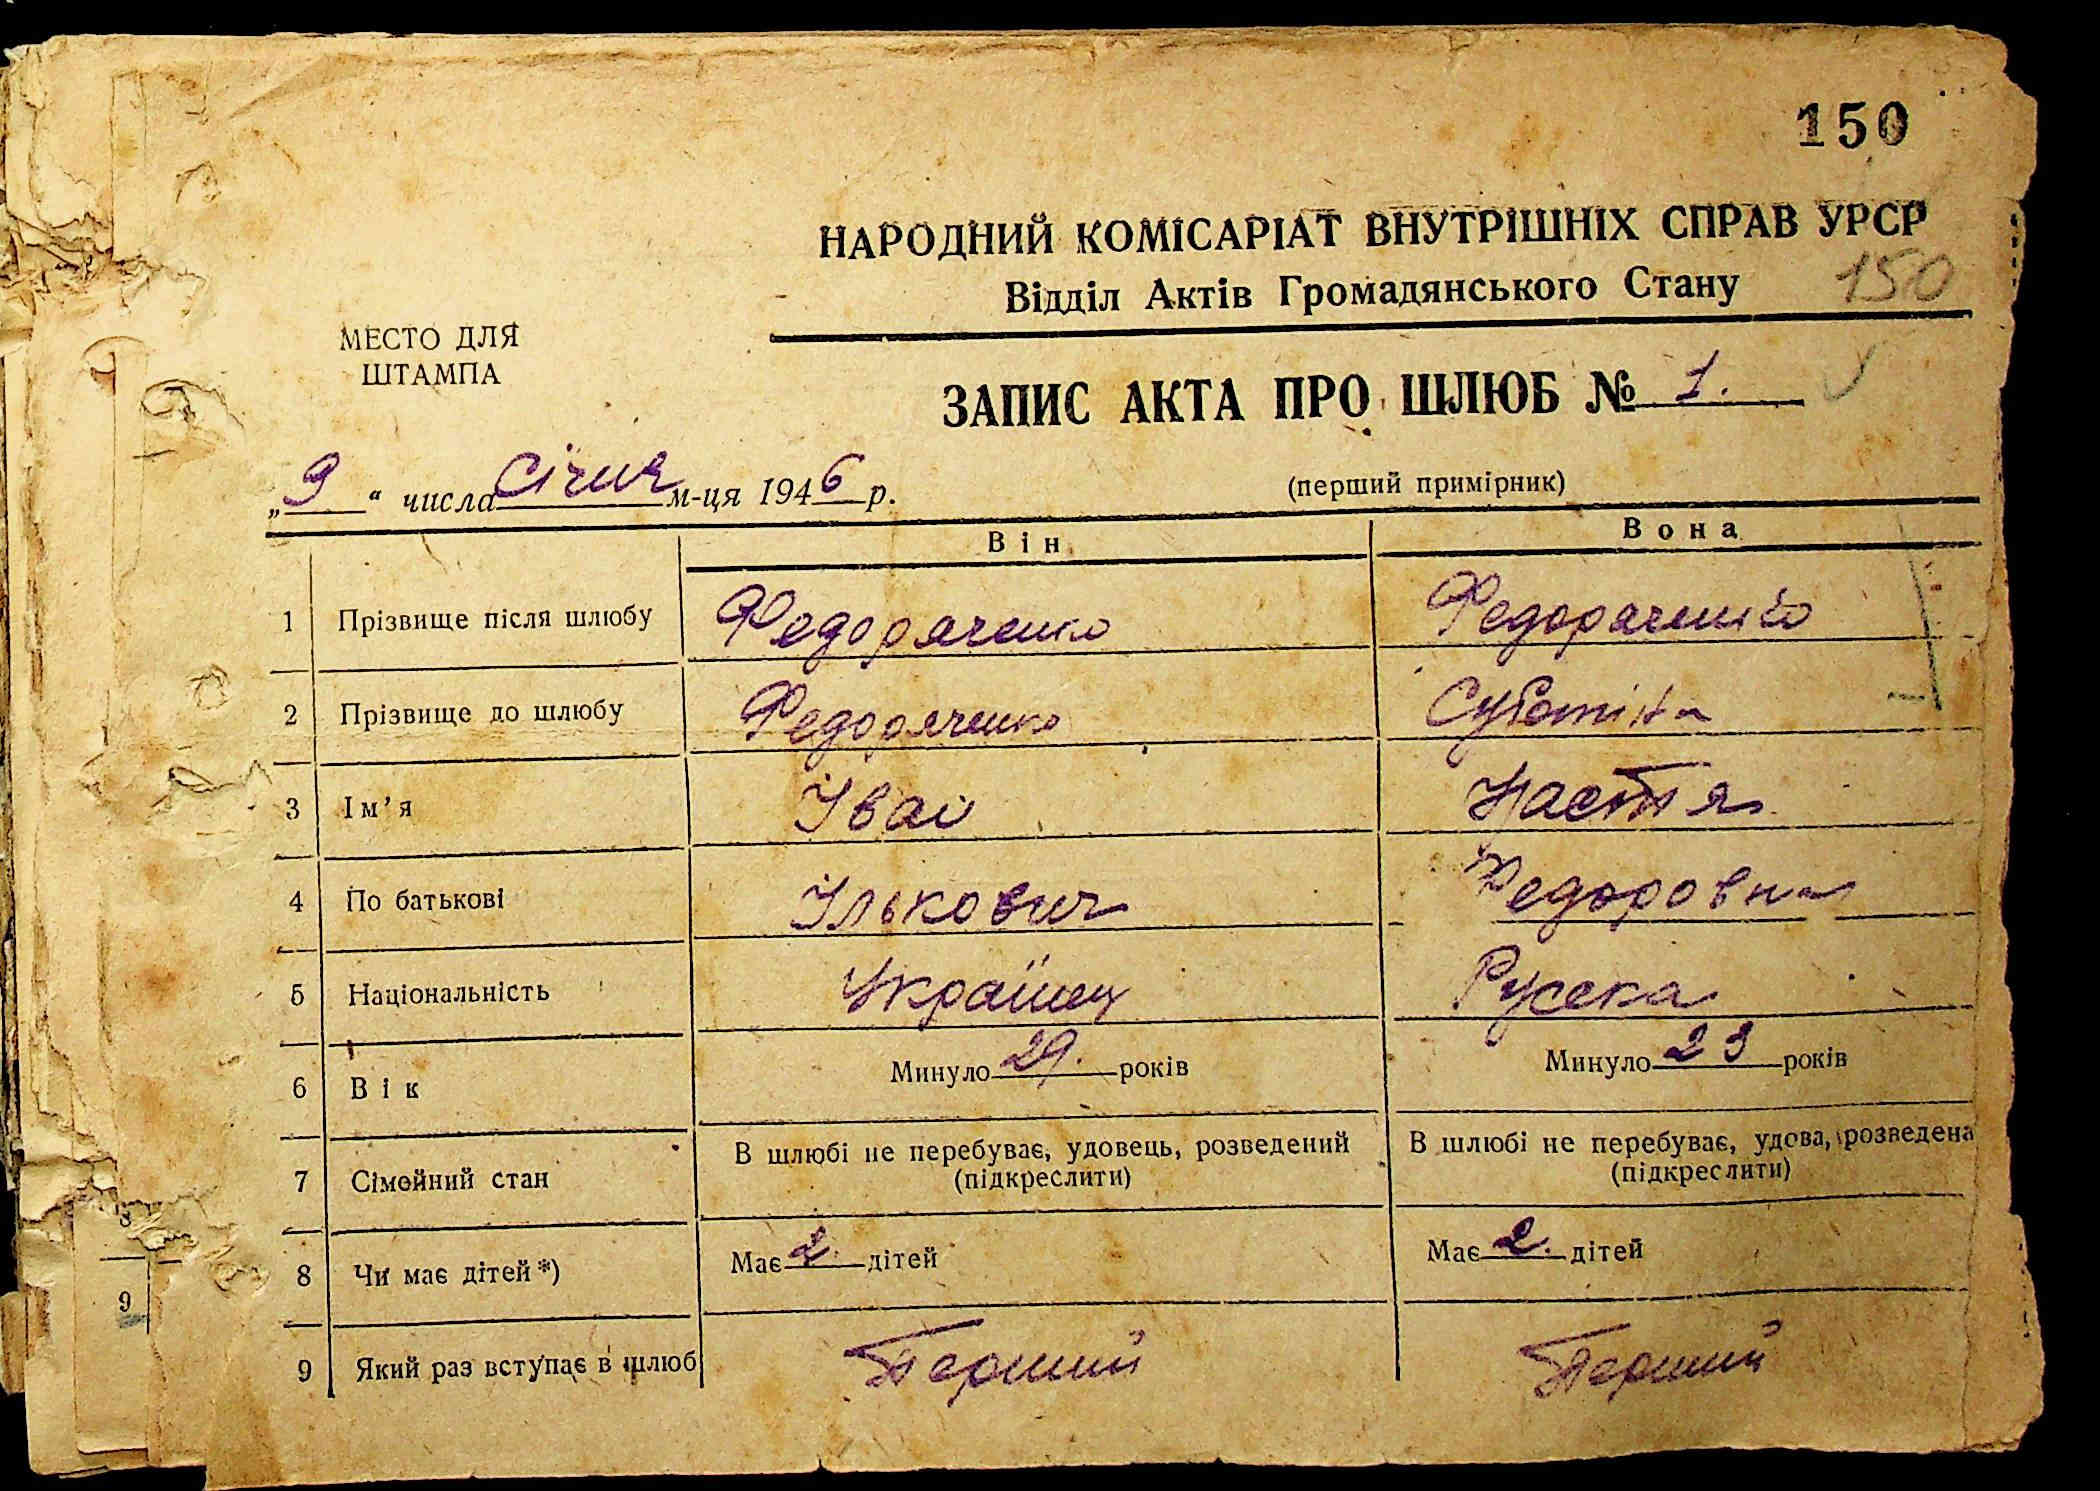 150
НАРОДНИЙ КОМІСАРІАТ ВНУТРІШНІХ СПРАВ УРСР
Відділ Актів Громадянського Стану 150
МЕСТО ДЛЯ
ШТАМПА
ЗАПИС АКТА ПРО ШЛЮБ № 1.
„9“ числа січня м-ця 1946 р.
(перший примірник)
Він Вона
1 Прізвище після шлюбу Федоряченко Федораченко
2 Прізвище до шлюбу Федоряченко Суботіна
3 Ім’я Іван Настя
4 По батькові Ількович Федоровна
5 Національність Українец Русска
6 Вік Минуло 29. років Минуло 23 років
7 Сімейний стан В шлюбі не перебуває, удовець, розведений (підкреслити) В шлюбі не перебуває, удова, розведена (підкреслити)
8 Чи має дітей*) Має 2. дітей Має 2. дітей
9 Який раз вступає в шлюб Перший Перший
9